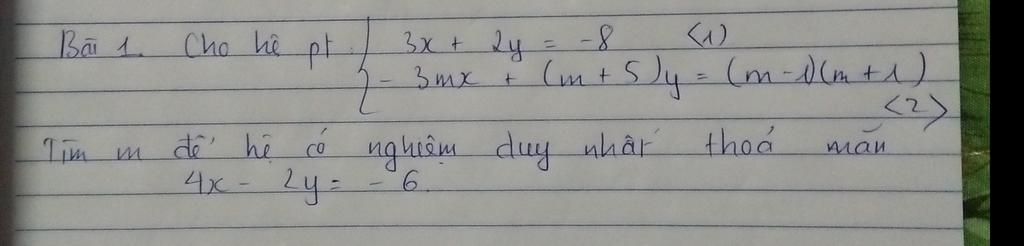 Bài 1. Cho hệ pt { 3x + 2y = -8 <1)
- 3mx + (m + 5)y = (m - 1)(m + 1)
<2>
Tìm m để hệ có nghiệm duy nhất thoả mãn
4x - 2y = - 6.